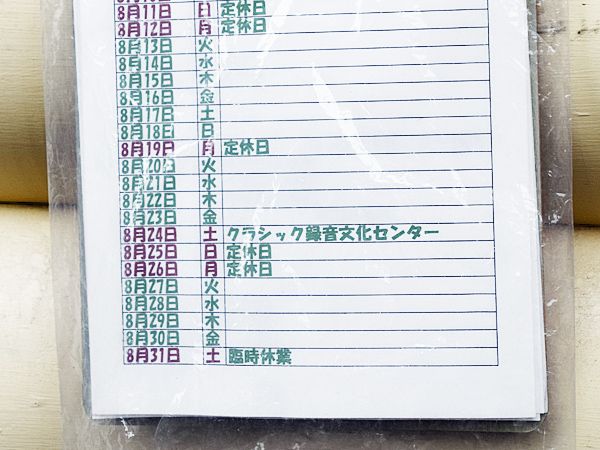 8月11日 日 定休日
8月12日 月 定休日
8月13日 火
8月14日 水
8月15日 木
8月16日 金
8月17日 土
8月18日 日
8月19日 月 定休日
8月20日 火
8月21日 水
8月22日 木
8月23日 金
8月24日 土 クラシック録音文化センター
8月25日 日 定休日
8月26日 月 定休日
8月27日 火
8月28日 水
8月29日 木
8月30日 金
8月31日 土 臨時休業